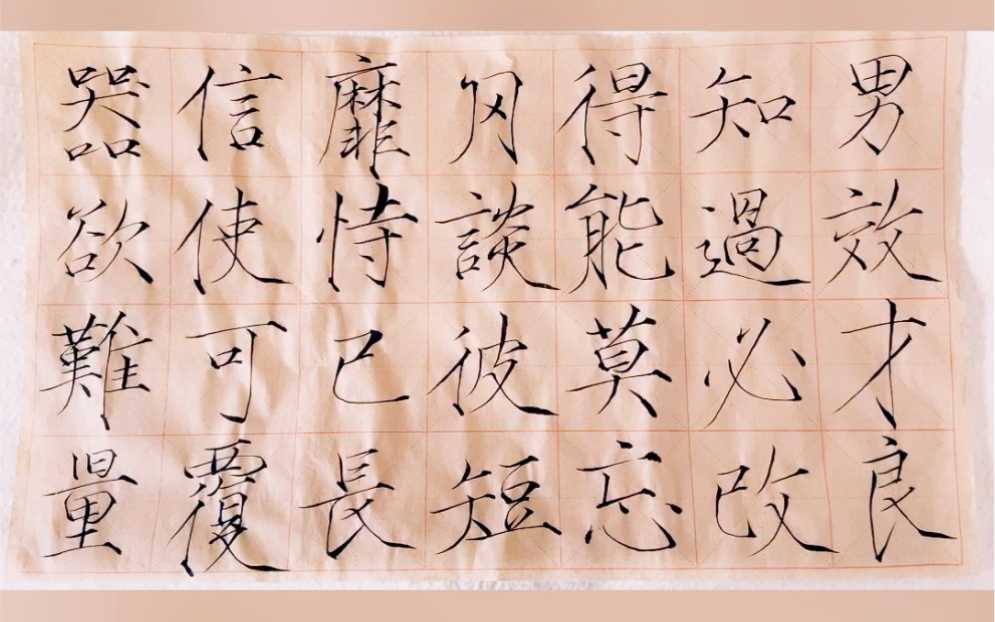 男效才良
知過必改
得能莫忘
罔談彼短
靡恃己長
信使可覆
器欲難量